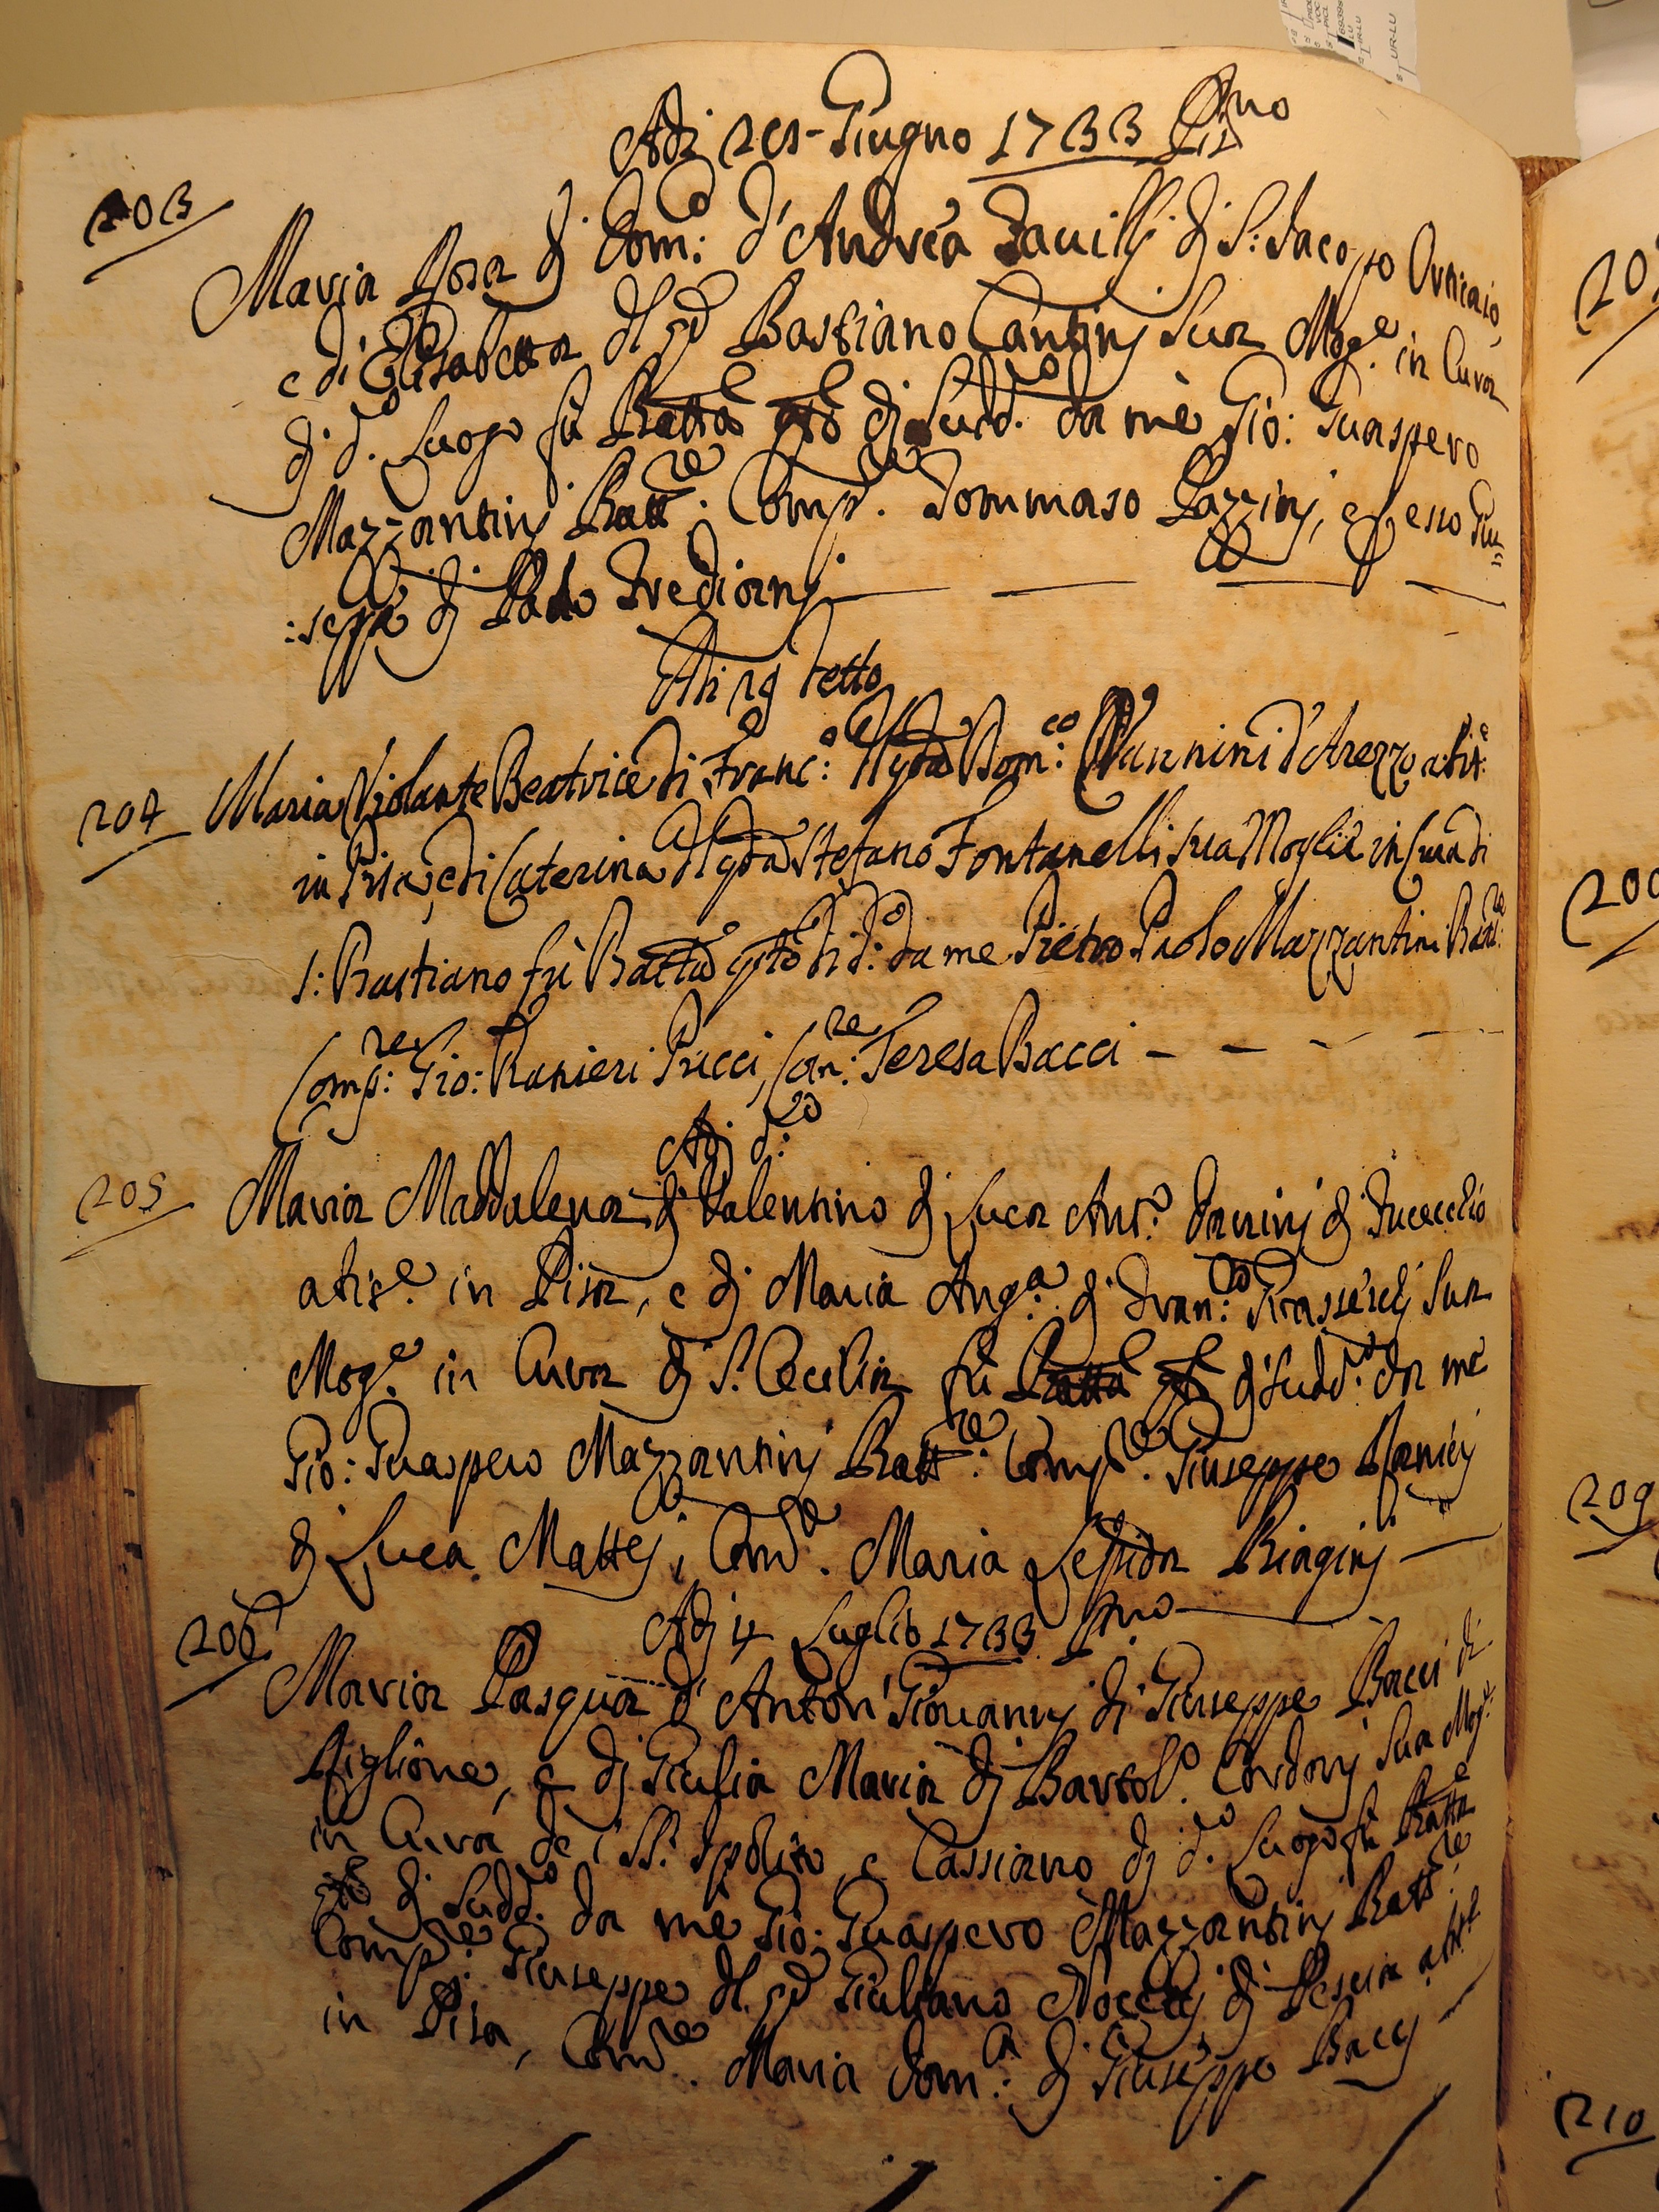 Adi 29 Giugno 1733 Pno
203
Maria Rosa di Domco: d'Andrea di S: Jacopo Orticaio,
e di Elisabetta dl qd Bastiano Cantinj Sua Moge. in Cura
dj do. Luogo fù Batta qto dj Sudo. da mè Gio: Guaspero
Mazzantinj Battre. Compre. Tommaso Pazzinj, e p esso Giu=
:seppe dj Paolo
Adi 29 detto
204 Maria Violante Beatrice di Franco: dl qda Domco: Vannini d'Arezzo abite:
in Pisa, e di Caterina dl qda Stefano Fontanelli sua Moglie in Cura di
S: Bastiano fù Batta qto di do: da me Pietro Paolo Mazzantini Battre:
Compre: Gio: Ranieri Pucci, Comre: Teresa Bacci
Adj do:
205 Maria Maddalena dj Valentino dj Luca Anto. dj Fucecchio
abite. in Pisa, e dj Maria Anga. dj Franco: Sua
Moge. in Cura dj S. Cecilia fù Batta qto dj Sudo. da me
Gio: Guaspero Mazzantinj Battre: Compre. Giuseppe Ranierj
dj Luca Mattej, Comre. Maria Lepida Biaginj
Adj 4 Luglio 1733 Pno
206
Maria Pasqua d'Anton' Giouannj di Giuseppe Bacci di
Riglione, e dj Giulia Maria dj Bartolo. Cordonj Sua Moge:
in Cura de' SS. Ipolito e Cassiano dj do. Luogo fù Batta
qto dj Sudo. da mè Gio: Guaspero Mazzantinj Battre:
Compre: Giuseppe dl qd Giuliano dj Pescia abite
in Pisa, Comre. Maria Doma: dj Giuseppe Baccj
209
210